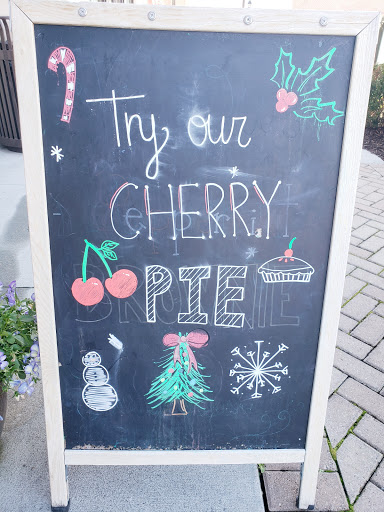 Try our
CHERRY
PIE